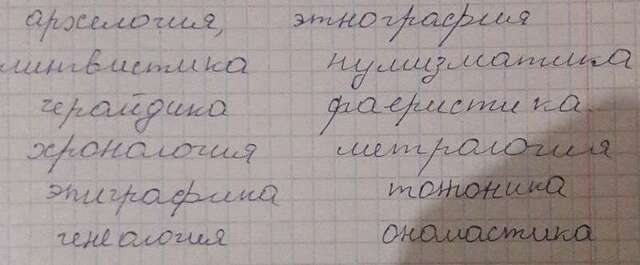 архелогия, этнография
лингвистика нумизматика
геройдика фаеристика
хронология метрология
эпиграфика тотоника
генеология ономастика